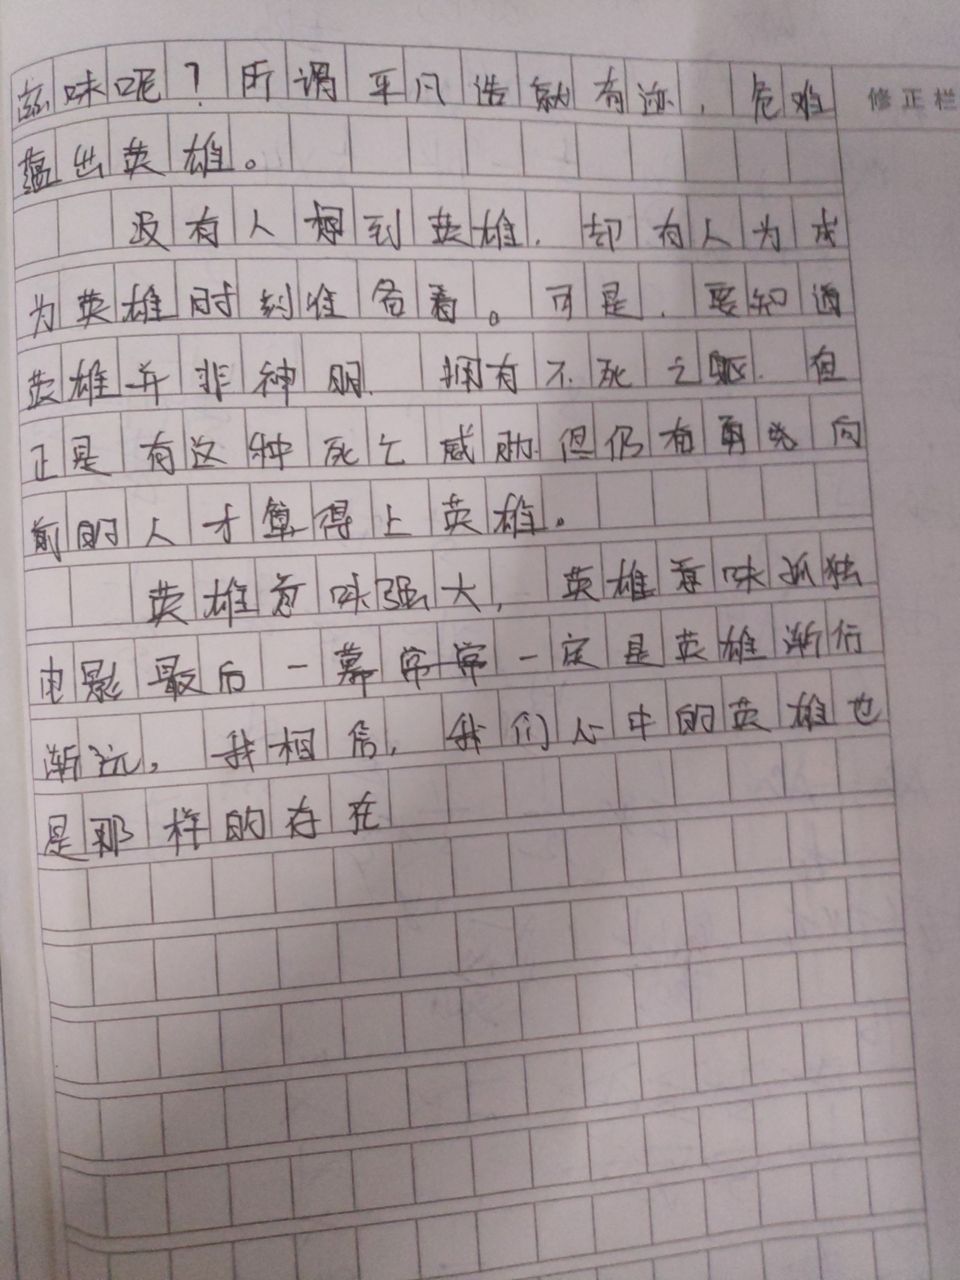 滋味呢？所谓平凡造就有迹，危难
修正栏
蕴出英雄。
没有人想到英雄，却有人为成
为英雄时刻准备着。可是，要知道
英雄并非神明，拥有不死之躯。但
正是有这种死亡威胁但仍有勇气向
前的人才算得上英雄。
英雄意味强大，英雄意味孤独
电影最后一幕常常一定是英雄渐行
渐远，我相信，我们心中的英雄也
是那样的存在